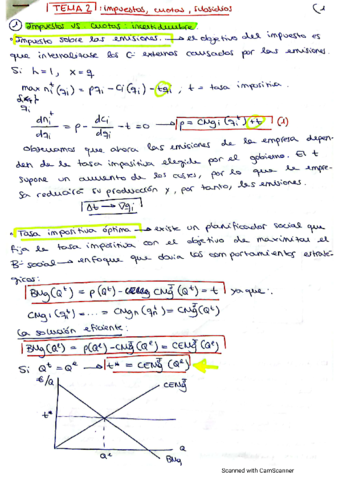 TEMA 2: impuestos, cuotas, subsidios
① Impuestos vs. cuotas: incertidumbre
· Impuesto sobre las emisiones. → el objetivo del impuesto es
que internalicese los C- externos causados por las emisiones.
Si h=1, x=q
max πi^t(qi) = pqi - Ci(qi) - tqi , t = tasa impositiva.
qi
dπi^t/dqi = p - dci/dqi - t = 0 → p = CMgi(qi^t) + t (1)
Observamos que ahora las emisiones de la empresa depen-
den de la tasa impositiva elegida por el gobierno. El t
supone un aumento de los costes, por lo que la empre-
sa reducirá su producción y, por tanto, las emisiones.
Δt → ∇qi
· Tasa impositiva óptima. → existe un planificador social que
fija la tasa impositiva con el objetivo de maximizar el
B- social → enfoque que obvia los comportamientos estraté-
gicos:
BMg(Q^t) = p(Q^t) - CMgJ(Q^t) = t ya que:
CMgi(qi^t) = ... = CMgn(qn^t) = CMgJ(Q^t)
La solución eficiente:
BMg(Q^e) = p(Q^e) - CMgJ(Q^e) = CEMgJ(Q^e)
Si Q^t = Q^e → t* = CEMgJ(Q^e)
€/Q
CEMgJ
t*
Q^e
Q
BMg
Scanned with CamScanner